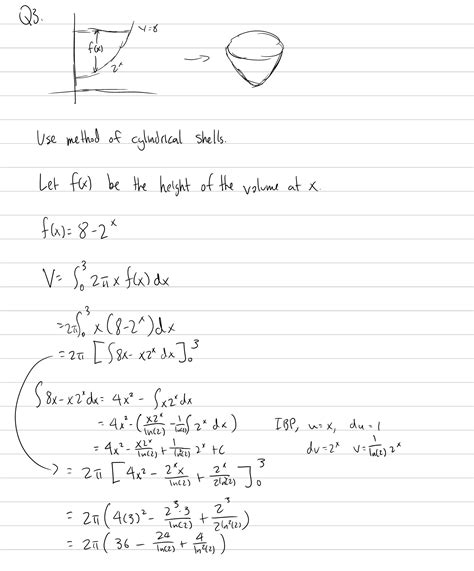 Q3.
y=8
f(x)
2^x
→
Use method of cylindrical shells.
Let f(x) be the height of the volume at x.
f(x) = 8 - 2^x
V = ∫_0^3 2π x f(x) dx
= 2π ∫_0^3 x(8 - 2^x) dx
= 2π [∫ 8x - x2^x dx]_0^3
∫ 8x - x2^x dx = 4x^2 - ∫ x2^x dx
= 4x^2 - (x2^x/ln(2) - 1/ln(2) ∫ 2^x dx) IBP, u=x, du=1
= 4x^2 - x2^x/ln(2) + 1/ln(2) · 2^x + C dv=2^x v=1/ln(2) 2^x
= 2π [4x^2 - 2^x x/ln(2) + 2^x/2ln(2)]_0^3
= 2π (4(3)^2 - 2^3·3/ln(2) + 2^3/2ln^2(2))
= 2π (36 - 24/ln(2) + 4/ln^2(2))